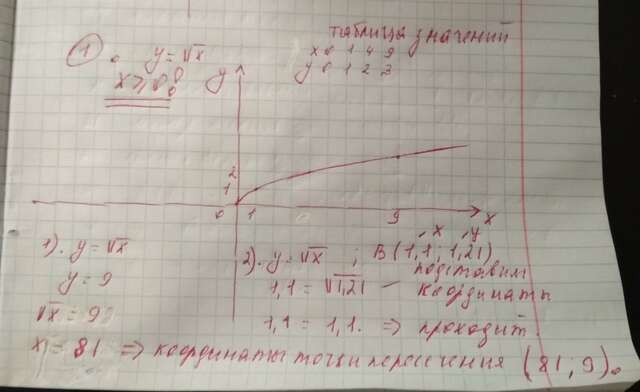 таблицы значений
① y = √x
x 0 1 4 9
y 0 1 2 3
x ≥ 0
y
2
1
0 1 9 x
1). y = √x
y = 9
√x = 9
x = 81 ⇒ координаты точки пересечения (81; 9).
x y
2). y = √x ; B (1,1; 1,21)
подставим
1,1 = √1,21 — координаты
1,1 = 1,1. ⇒ проходит